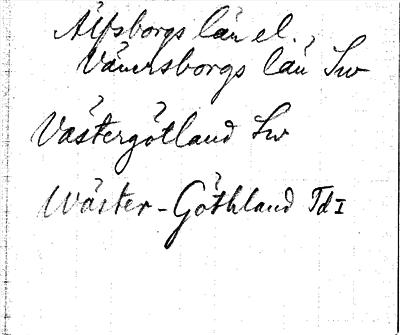 Älfsborgs län el.
Vänersborgs län Sw
Västergötland Sw
Wäster-Göthland Td I